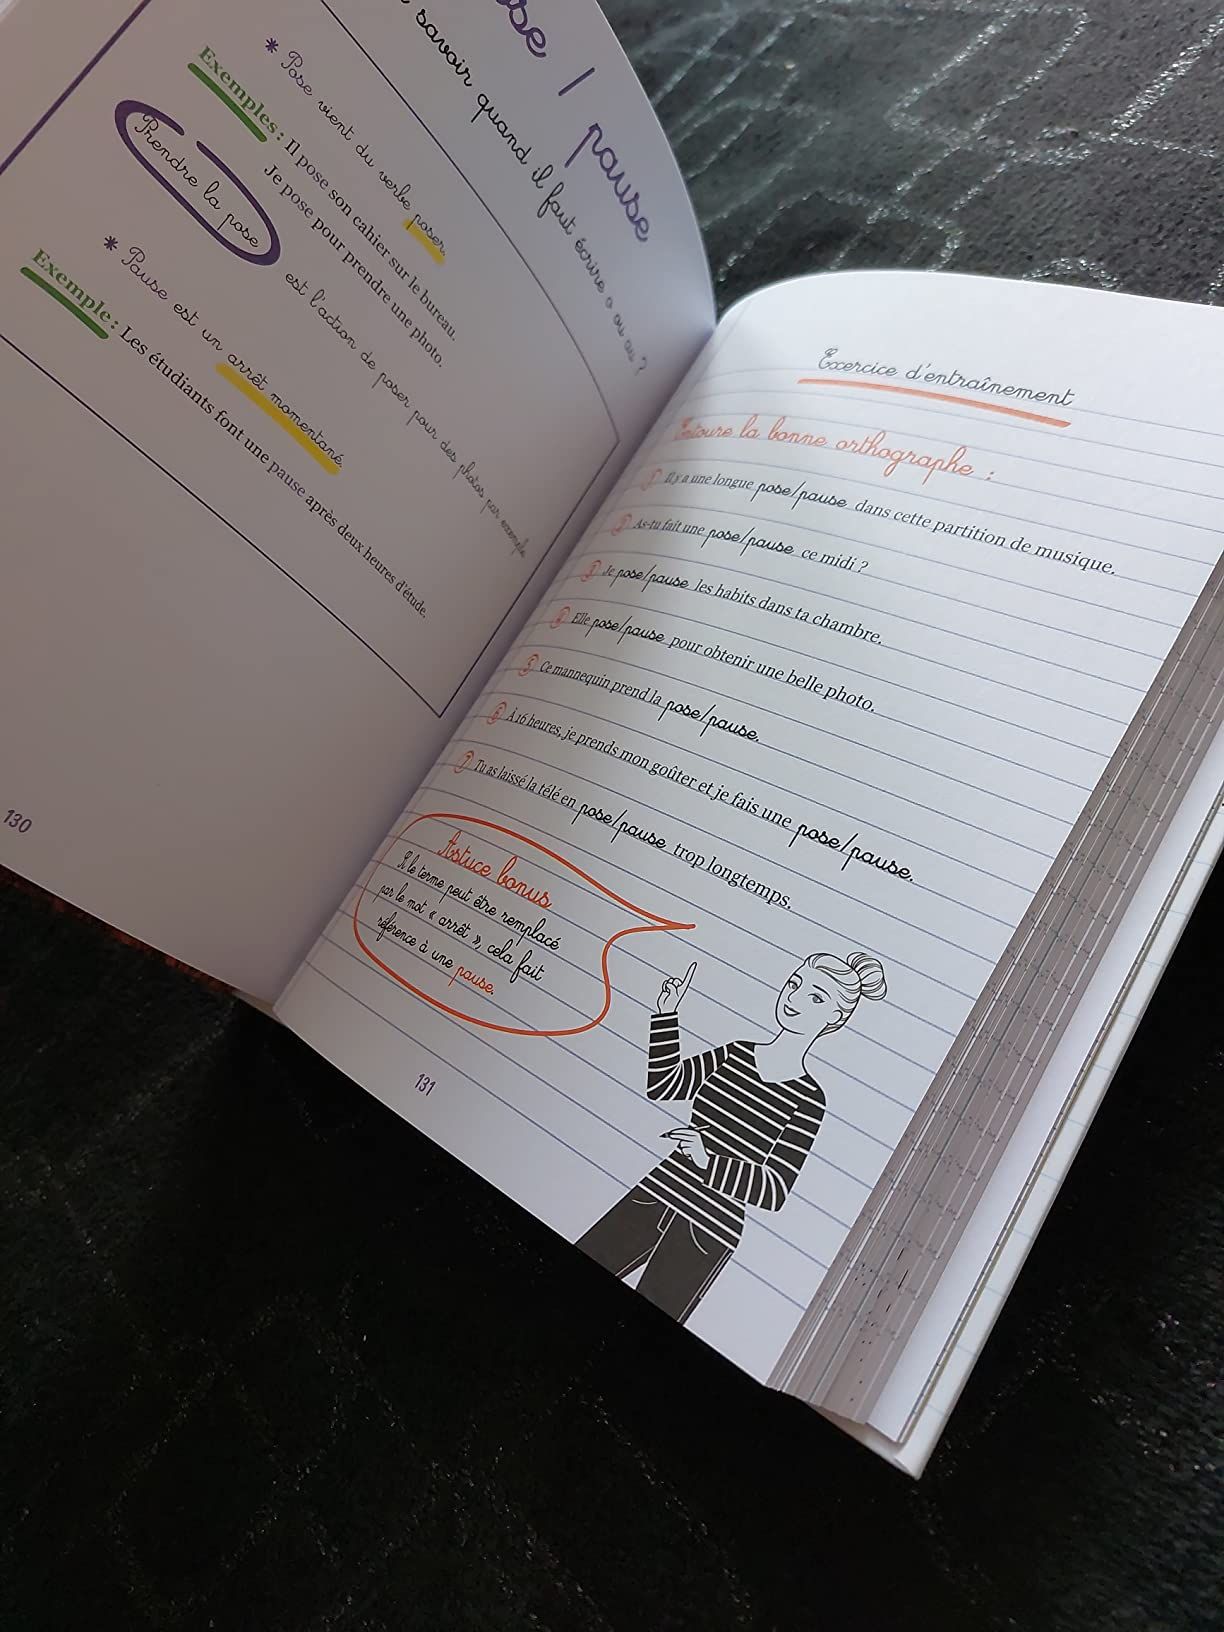 pause
savoir quand il faut écrire o ou au ?
* Pose vient du verbe poser.
Exemples : Il pose son cahier sur le bureau.
Je pose pour prendre une photo.
Prendre la pose est l'action de poser pour des photos par exemple
* Pause est un arrêt momentané.
Exemple : Les étudiants font une pause après deux heures d'étude.
130
Exercice d'entraînement
Entoure la bonne orthographe :
1 Il y a une longue pose/pause dans cette partition de musique.
2 As-tu fait une pose/pause ce midi ?
3 Je pose/pause les habits dans ta chambre.
4 Elle pose/pause pour obtenir une belle photo.
5 Ce mannequin prend la pose/pause.
6 À 16 heures, je prends mon goûter et je fais une pose/pause.
7 Tu as laissé la télé en pose/pause trop longtemps.
Astuce bonus
Si le terme peut être remplacé
par le mot « arrêt », cela fait
référence à une pause.
131